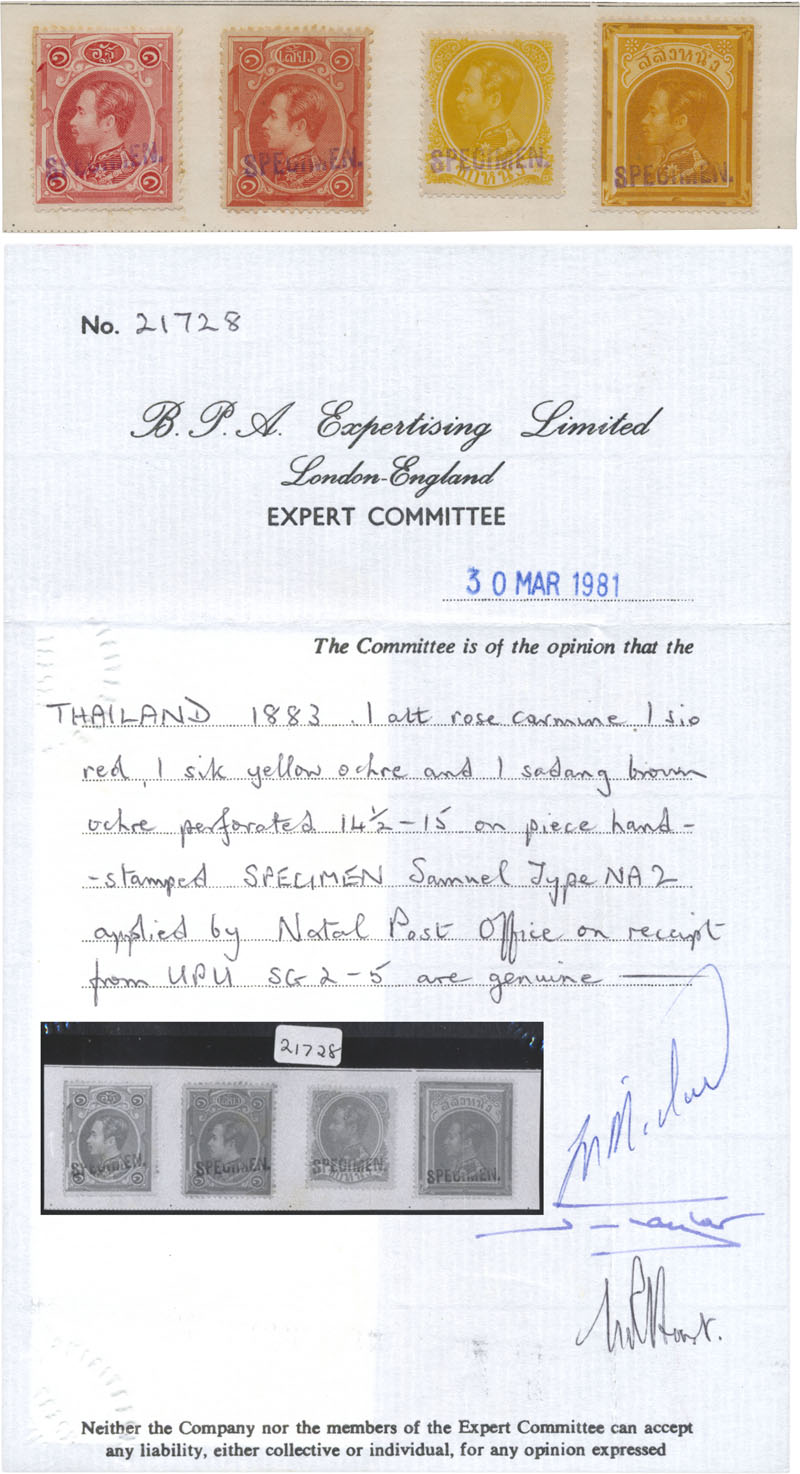 ๑ อัฐ ๑ ๑ เสี้ยว ๑ สลึงหนึ่ง
SPECIMEN. SPECIMEN. SPECIMEN. SPECIMEN.
๑ ๑ ๑ ๑
No. 21728
B. P. A. Expertising Limited
London-England
EXPERT COMMITTEE
30 MAR 1981
The Committee is of the opinion that the
THAILAND 1883. 1 att rose carmine, 1 sio
red, 1 sik yellow ochre and 1 sadang brown
ochre perforated 14½-15 on piece hand-
-stamped SPECIMEN Samuel Type NA2
applied by Natal Post Office on receipt
from UPU SG 2-5 are genuine
21728
๑ อัฐ ๑ ๑ เสี้ยว ๑ สลึงหนึ่ง
SPECIMEN. SPECIMEN. SPECIMEN. SPECIMEN.
๑ ๑ ๑ ๑
Neither the Company nor the members of the Expert Committee can accept
any liability, either collective or individual, for any opinion expressed